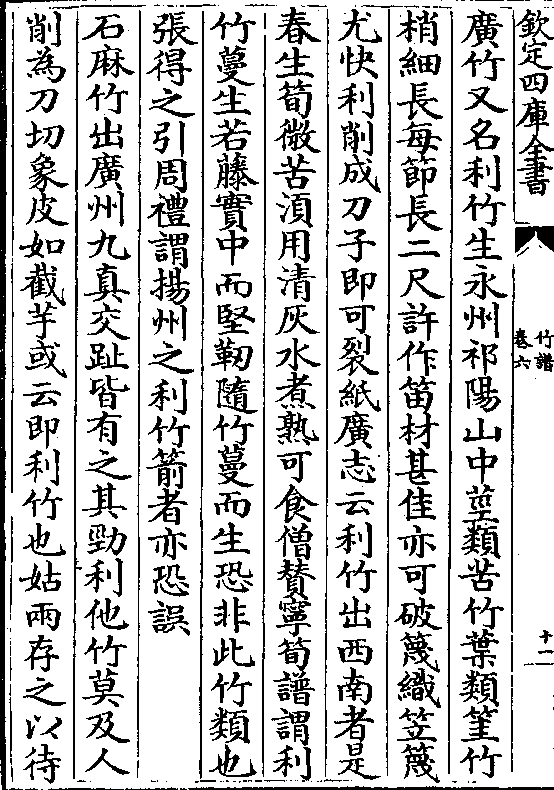 欽定四庫全書
竹譜
卷六
十一
廣竹又名利竹生永州祁陽山中莖類苦竹葉類筀竹
梢細長每節長二尺許作笛材甚佳亦可破篾織笠篾
尤快利削成刀子即可裂紙廣志云利竹出西南者是
春生筍微苦湏用清灰水煮熟可食僧賛寧筍譜謂利
竹蔓生若藤實中而堅韌隨竹蔓而生恐非此竹類也
張得之引周禮謂揚州之利竹箭者亦恐誤
石麻竹出廣州九真交趾皆有之其勁利他竹莫及人
削為刀切象皮如截芋或云即利竹也姑兩存之以待